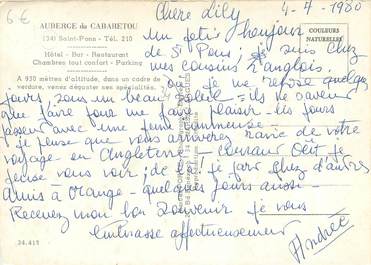 6€
AUBERGE du CABARETOU
(34) Saint-Pons - Tél. 210
Hôtel - Bar - Restaurant
Chambres tout confort - Parking
A 930 mètres d'altitude, dans un cadre de
verdure, venez déguster ses spécialités.
COULEURS
NATURELLES
Chère Lily 4-7-1980
Un petit bonjour
de St Pons, je suis chez
mes cousins Langlois.
où je me repose quelques
jours, sous un beau soleil = ils ne savent
que faire pour me faire plaisir - les jours
passent avec une
je pense que vous arriverez ravie de votre
voyage en Angleterre - Courant Oût je
pense vous voir ; de là, je pars chez d'autres
Amis à Orange - quelques jours aussi -
Recevez mon bon Souvenir je vous
embrasse affectueusement
Andrée
34.415